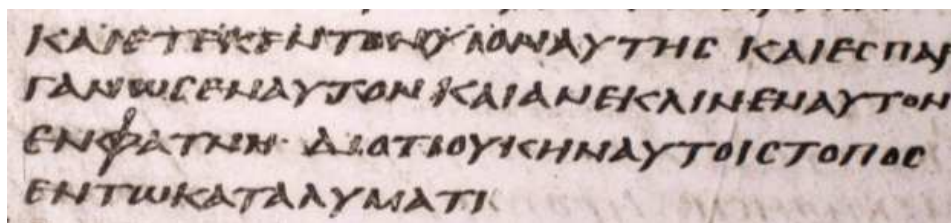 ΚΑΙΕΤΕΚΕΝΤΟΝΥΙΟΝΑΥΤΗΣ ΚΑΙΕΣΠΑΡ
ΓΑΝΩΣΕΝΑΥΤΟΝ ΚΑΙΑΝΕΚΛΙΝΕΝΑΥΤΟΝ
ΕΝΦΑΤΝΗ· ΔΙΟΤΙΟΥΚΗΝΑΥΤΟΙΣΤΟΠΟΣ
ΕΝΤΩΚΑΤΑΛΥΜΑΤΙ